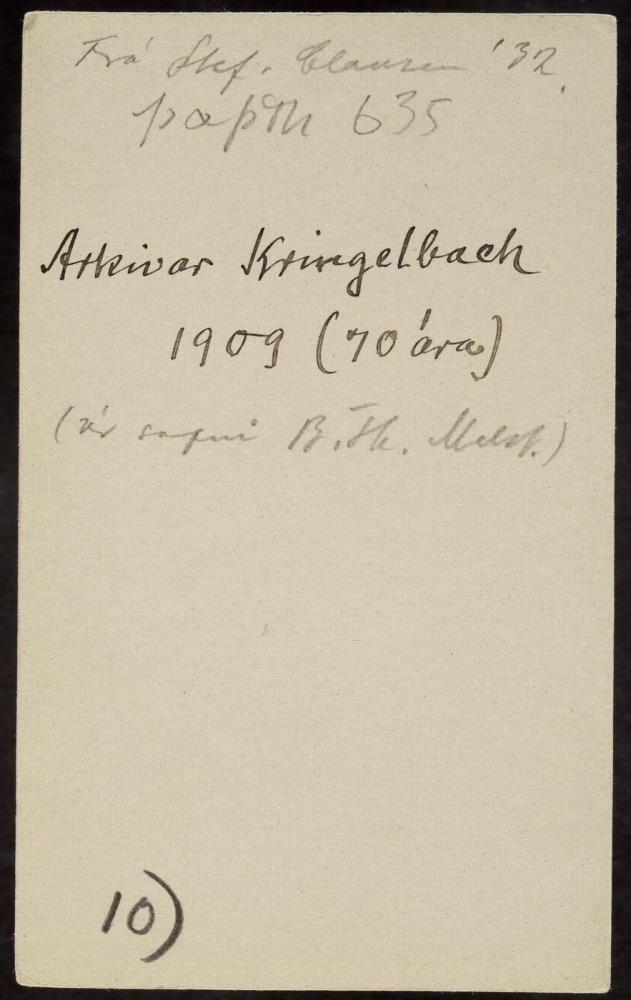 Frá Stef. Clausen '32.
þaþth 635
Arkivar Kringelbach
1909 (70 ára)
(úr safni B. Th. Melst.)
10)